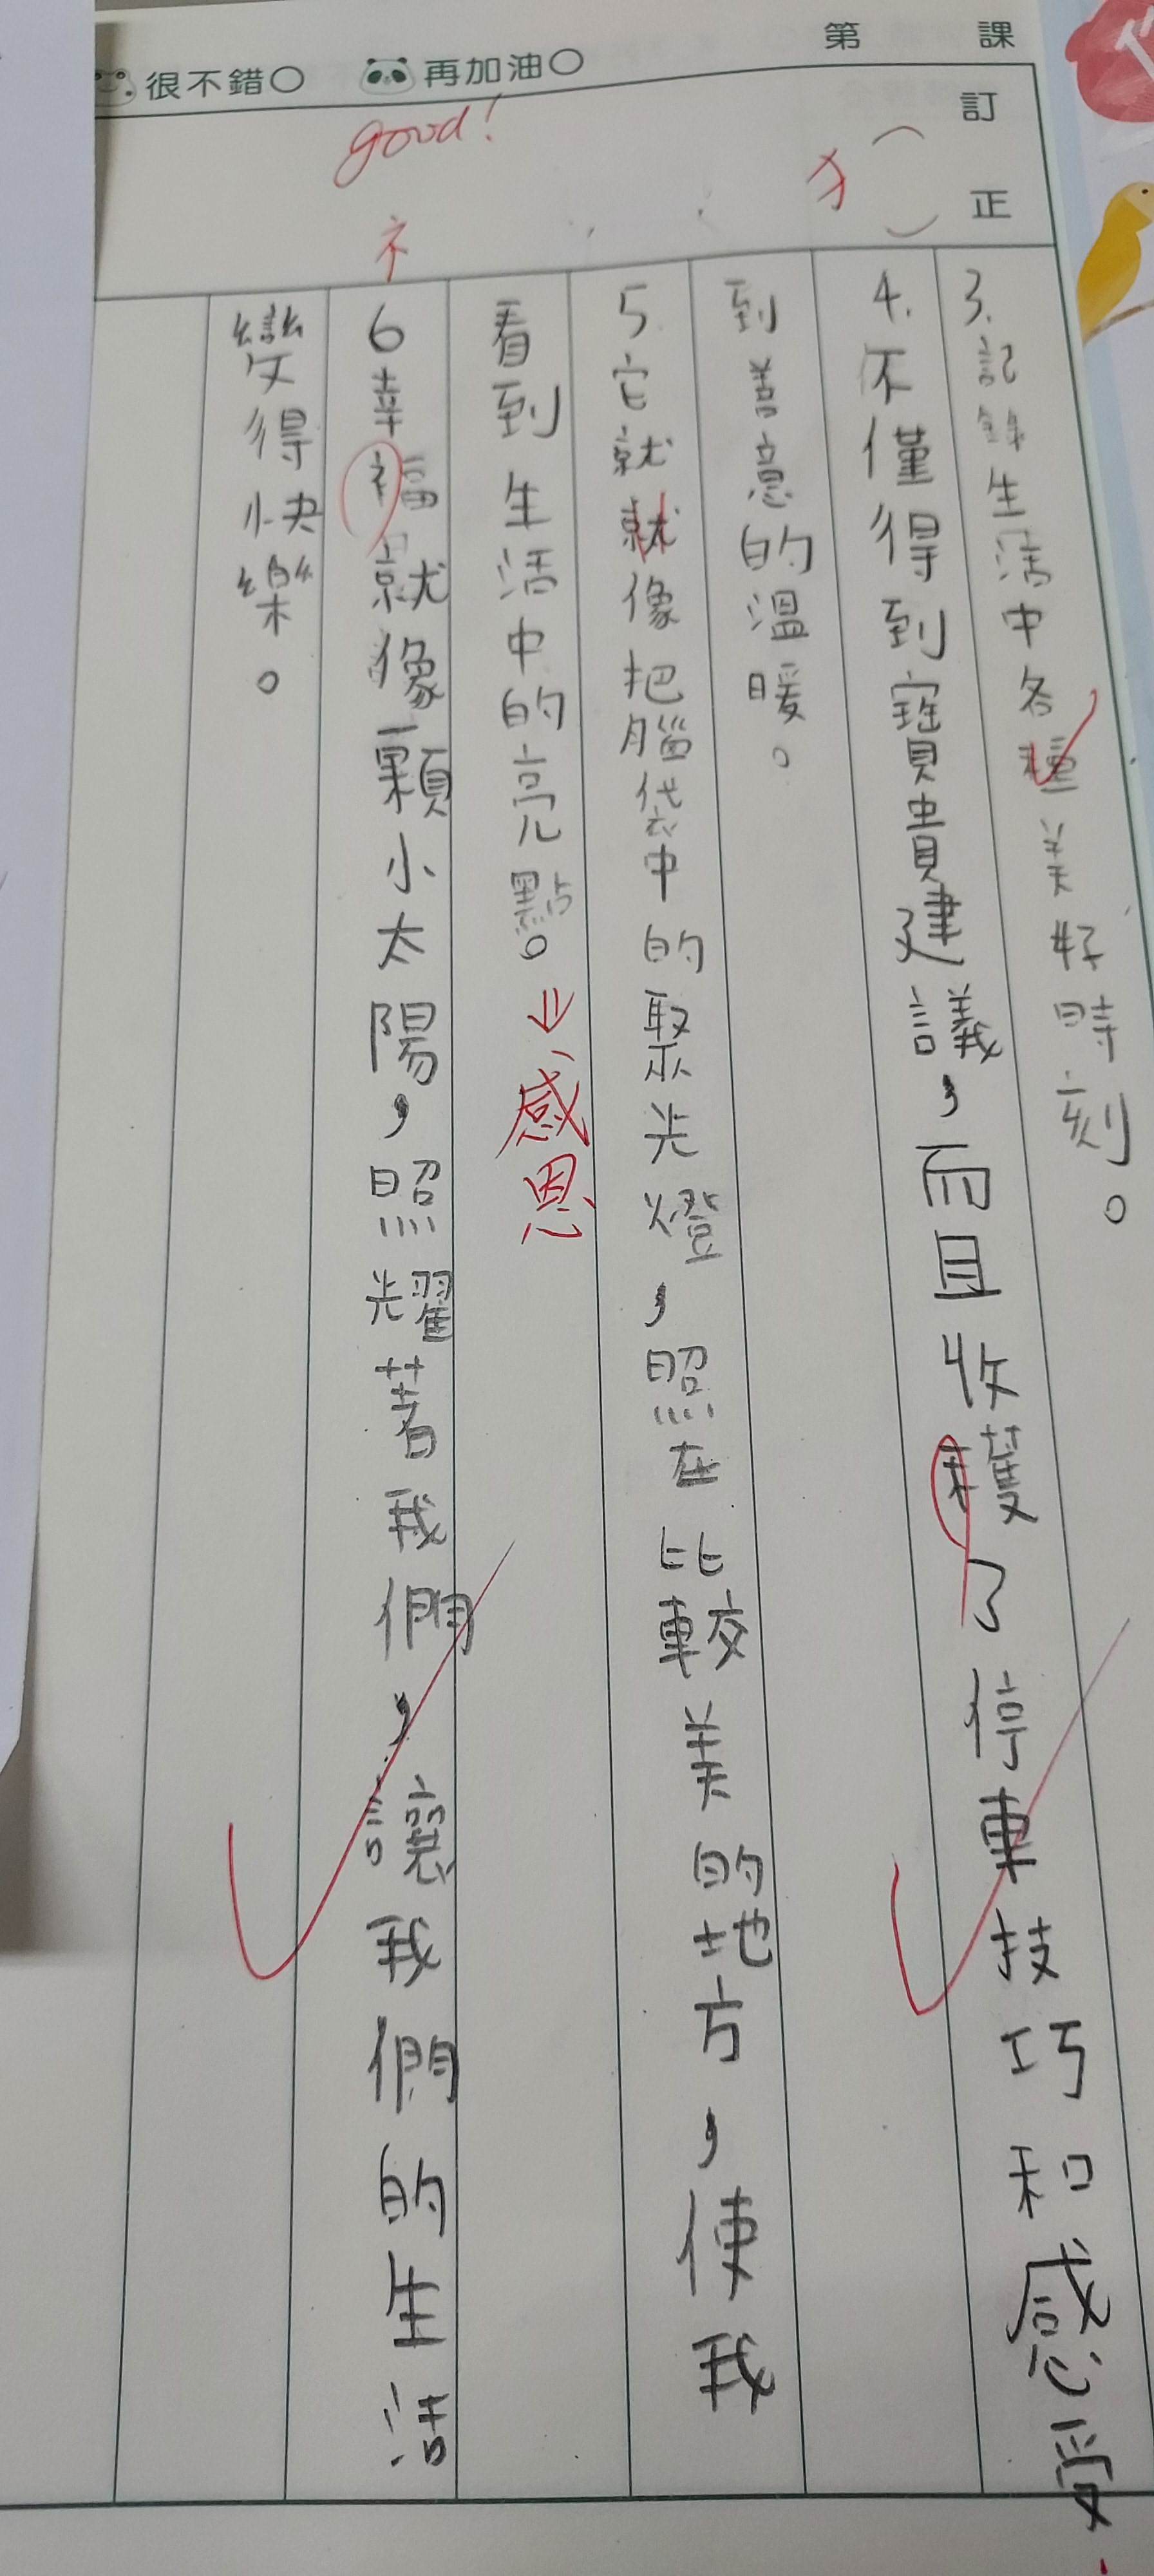 第 課
很不錯○ 再加油○
訂正
good!
犭
礻
3.記錄生活中各種美好時刻。
4.不僅得到寶貴建議，而且收穫了停車技巧和感受
到善意的溫暖。
5.它就就像把腦袋中的聚光燈，照在比較美的地方，使我
看到生活中的亮點。⇒感恩
6幸福就像一顆小太陽，照耀著我們，讓我們的生活
變得快樂。